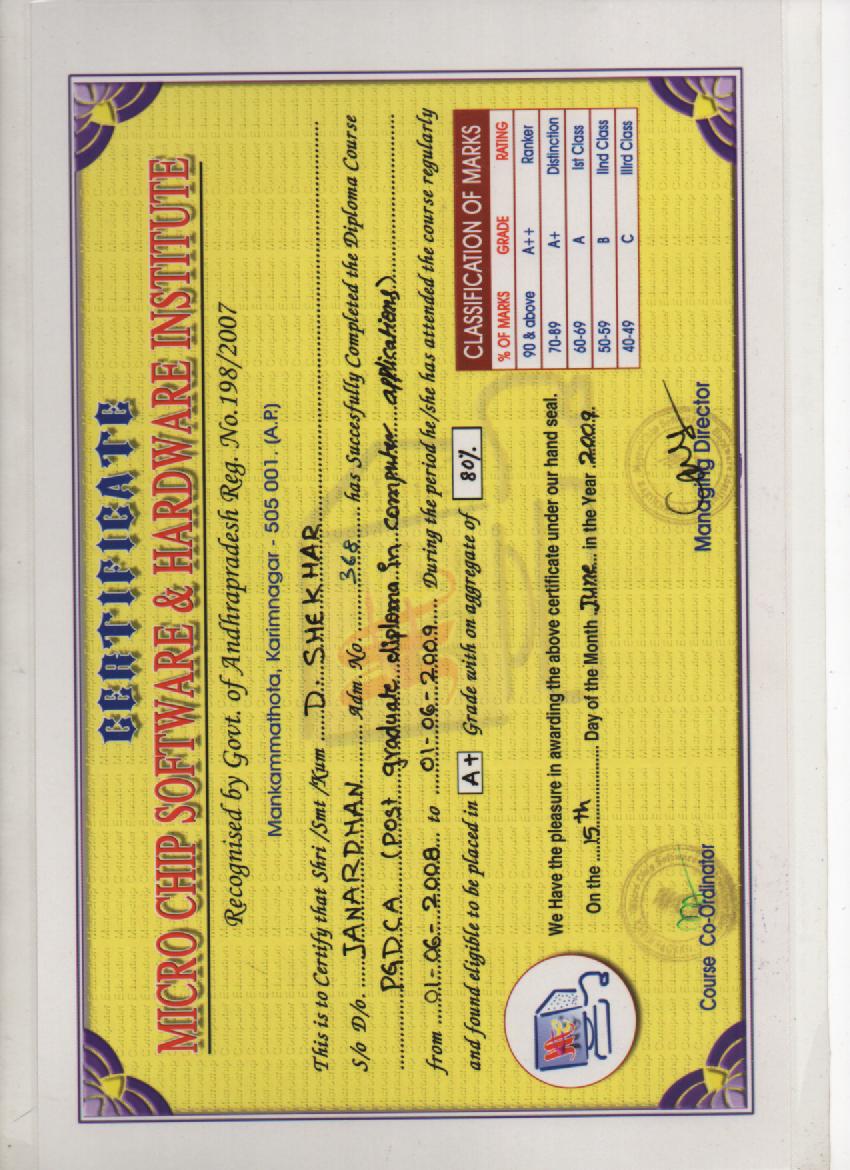 CERTIFICATE
MICRO CHIP SOFTWARE & HARDWARE INSTITUTE
Recognised by Govt. of Andhrapradesh Reg. No.198/2007
Mankammathota, Karimnagar - 505 001. (A.P.)
This is to Certify that Shri /Smt /Kum D. SHEKHAR
S/o D/o. JANARDHAN Adm. No. 368 has Succesfully Completed the Diploma Course
PGDCA (Post graduate diploma in computer applications)
from 01-06-2008 to 01-06-2009 During the period he/she has attended the course regularly
and found eligible to be placed in A+ Grade with on aggregate of 80%.
CLASSIFICATION OF MARKS
% OF MARKS GRADE RATING
90 & above A++ Ranker
70-89 A+ Distinction
60-69 A Ist Class
50-59 B IInd Class
40-49 C IIIrd Class
We Have the pleasure in awarding the above certificate under our hand seal.
On the 15th Day of the Month June in the Year 2009.
Course Co-Ordinator
Managing Director